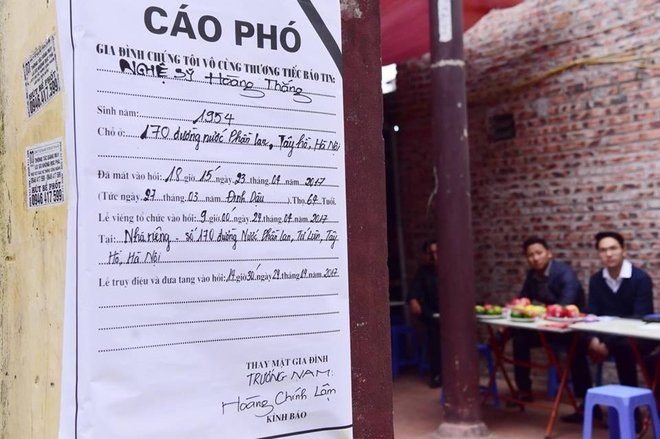 CÁO PHÓ
GIA ĐÌNH CHÚNG TÔI VÔ CÙNG THƯƠNG TIẾC BÁO TIN:
NGHỆ SỸ Hoàng Thắng
Sinh năm: 1954
Chỗ ở: 170 đường nước Phần lan, Tây hồ, Hà Nội
Đã mất vào hồi: 18 giờ 15 ngày 23 tháng 04 năm 2017
(Tức ngày 27 tháng 03 năm Đinh Dậu) Thọ 64 Tuổi.
Lễ viếng tổ chức vào hồi: 9 giờ 00 ngày 29 tháng 04 năm 2017
Tại: Nhà riêng - số 170 đường Nước Phần lan, Tứ Liên, Tây
Hồ, Hà Nội
Lễ truy điệu và đưa tang vào hồi: 14 giờ 30 ngày 29 tháng 04 năm 2017
THAY MẶT GIA ĐÌNH
TRƯỞNG NAM.
Hoàng Chính Lâm
KÍNH BÁO
HÚT BỂ PHỐT
0946 417 599